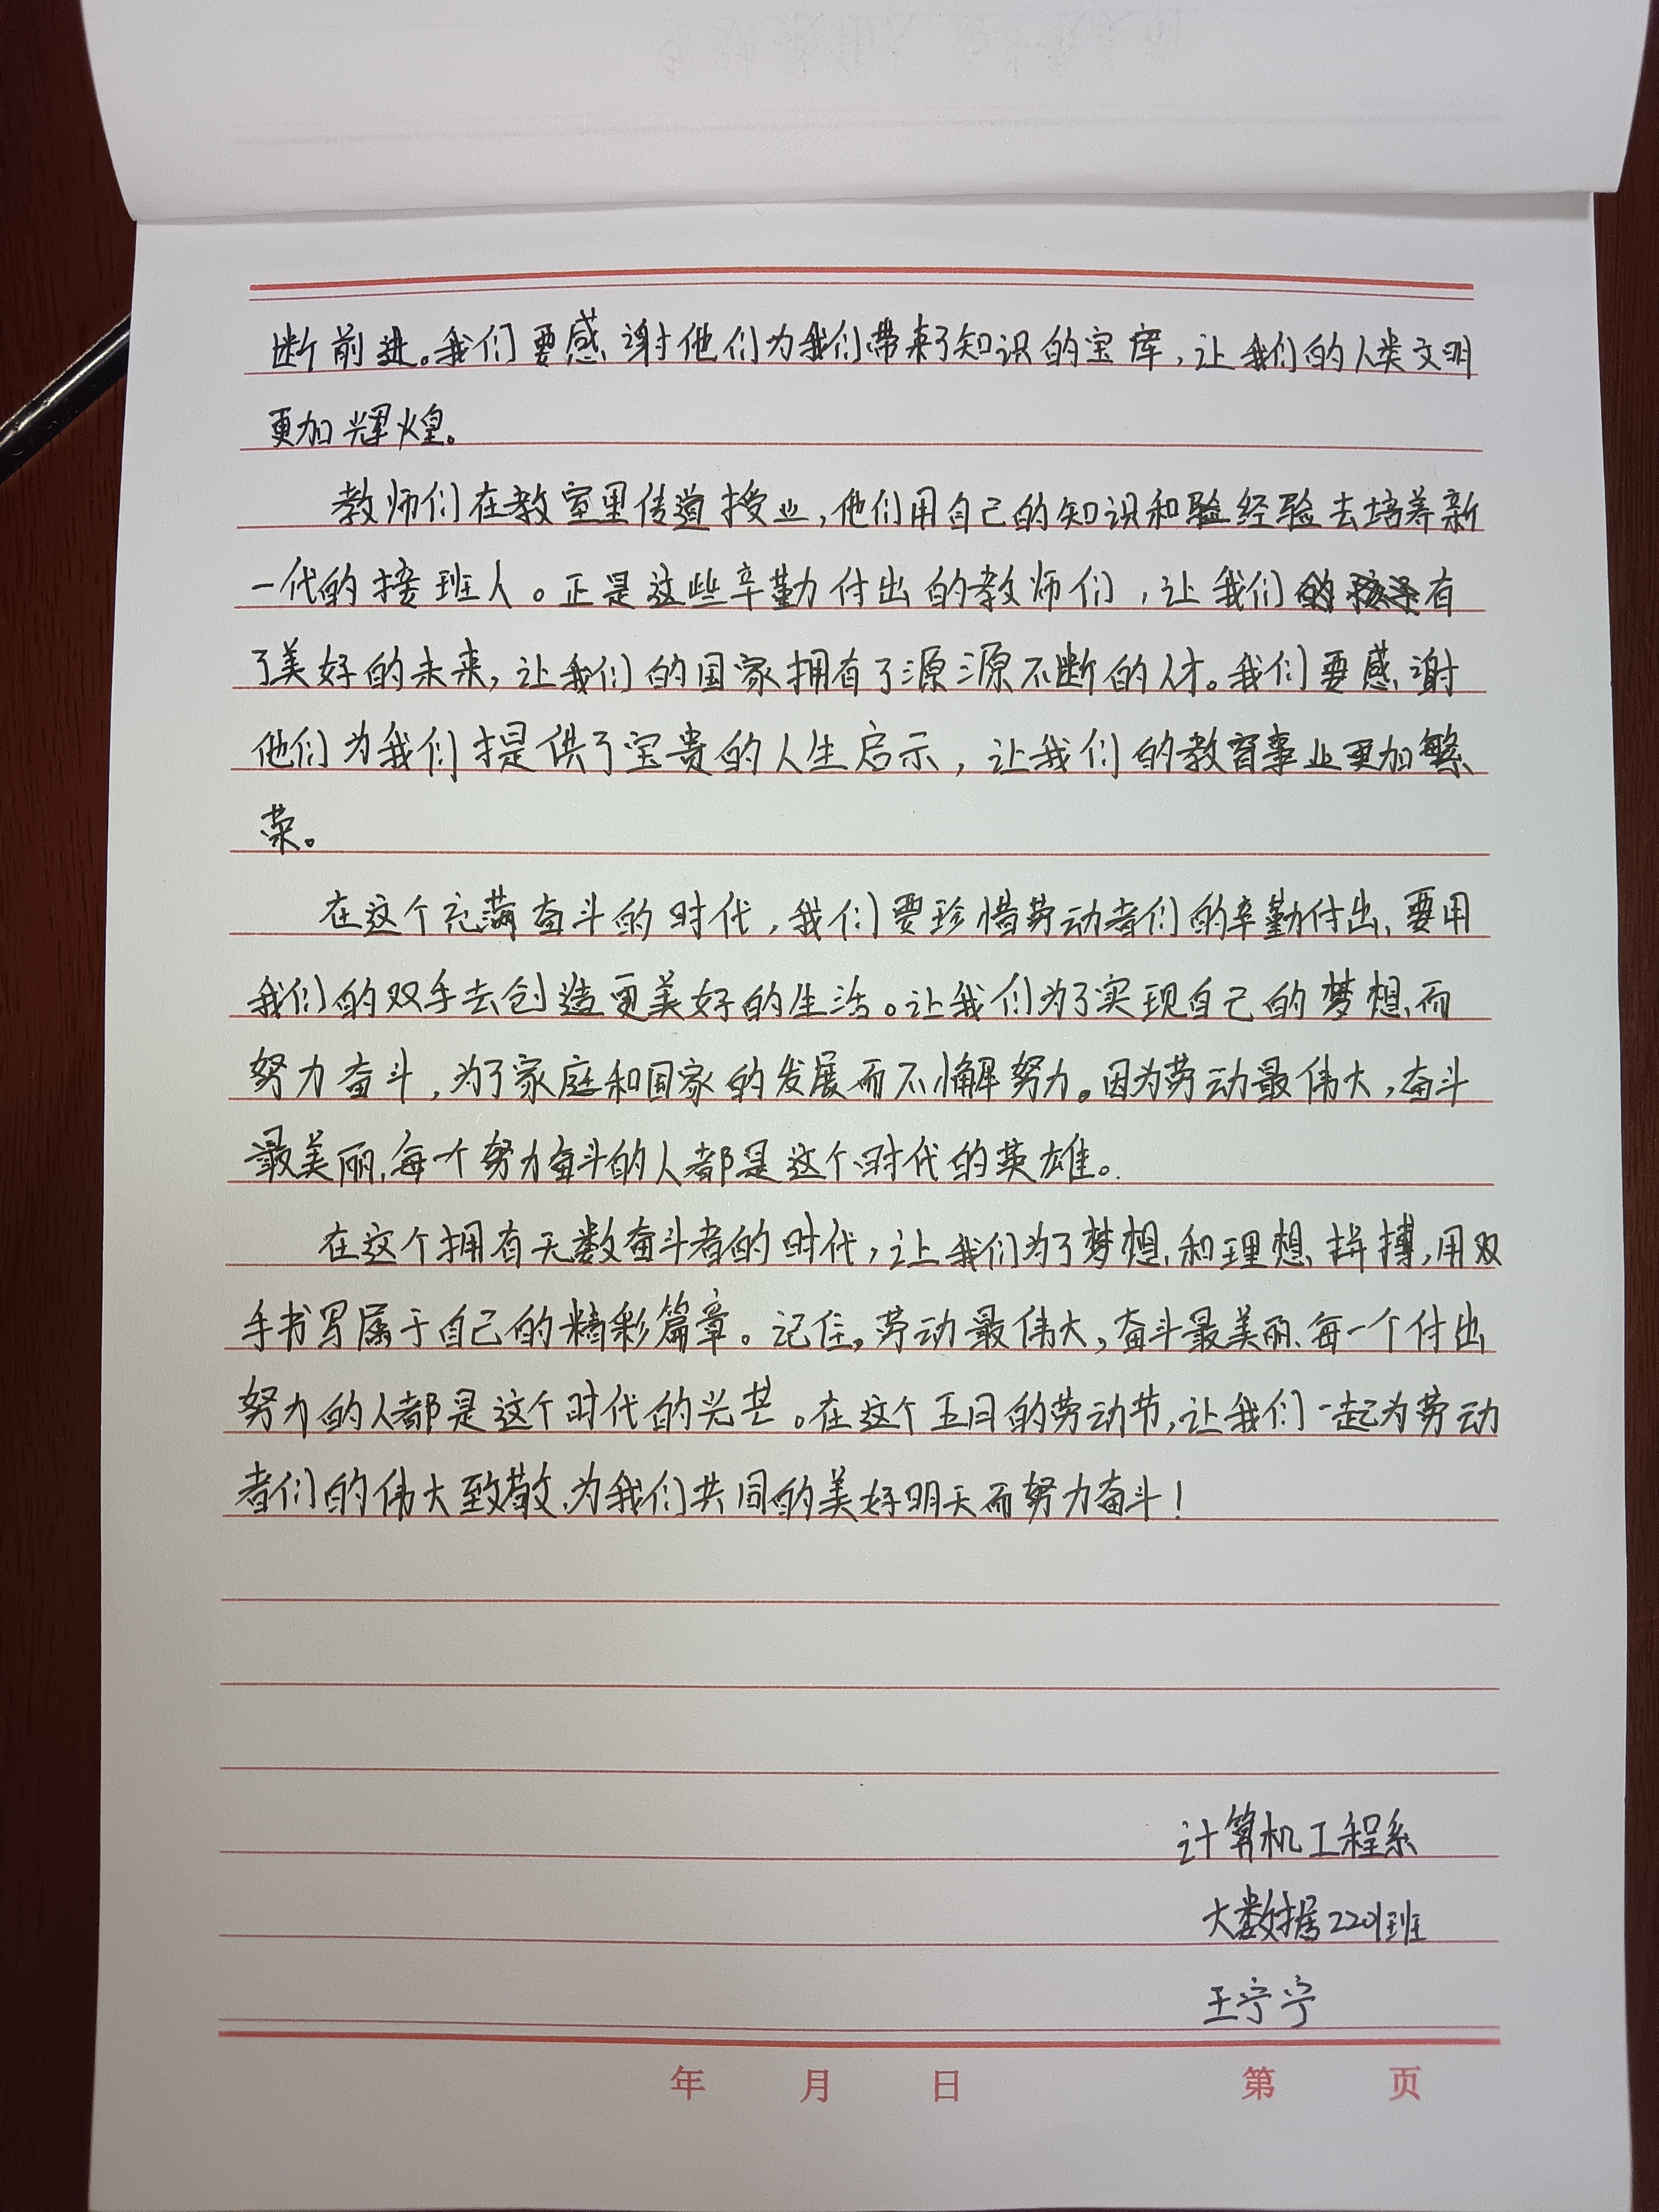 断前进。我们要感谢他们为我们带来了知识的宝库，让我们的人类文明
更加辉煌。
教师们在教室里传道授业，他们用自己的知识和验经验去培养新
一代的接班人。正是这些辛勤付出的教师们，让我们有
了美好的未来，让我们的国家拥有了源源不断的人才。我们要感谢
他们为我们提供了宝贵的人生启示，让我们的教育事业更加繁
荣。
在这个充满奋斗的时代，我们要珍惜劳动者们的辛勤付出，要用
我们的双手去创造更美好的生活。让我们为了实现自己的梦想而
努力奋斗，为了家庭和国家的发展而不懈努力。因为劳动最伟大，奋斗
最美丽，每一个努力奋斗的人都是这个时代的英雄。
在这个拥有无数奋斗者的时代，让我们为了梦想和理想拼搏，用双
手书写属于自己的精彩篇章。记住，劳动最伟大，奋斗最美丽、每一个付出
努力的人都是这个时代的光芒。在这个五月的劳动节，让我们一起为劳动
者们的伟大致敬，为我们共同的美好明天而努力奋斗！
计算机工程系
大数据2201班
王宁宁
年 月 日 第 页